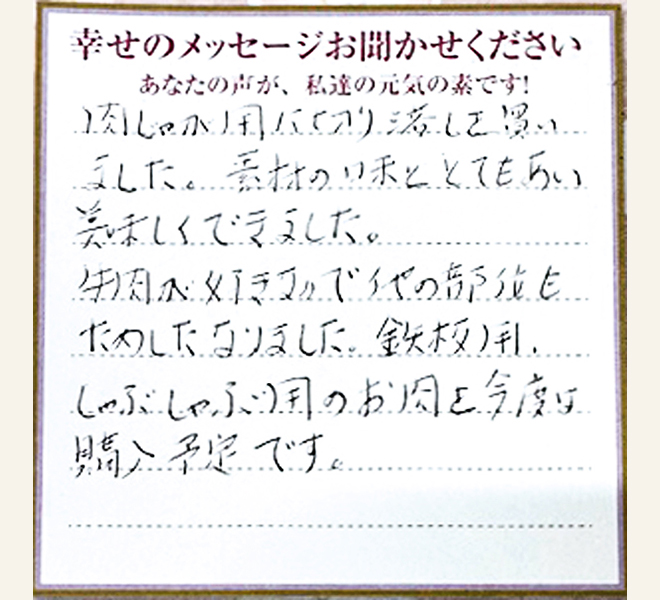 幸せのメッセージお聞かせください
あなたの声が、私達の元気の素です!
肉じゃが用に切り落しを買い
ました。素材の味ととてもあい
美味しくできました。
牛肉が好きなので他の部位も
ためしたくなりました。鉄板用、
しゃぶしゃぶ用のお肉を今度は
購入予定です。